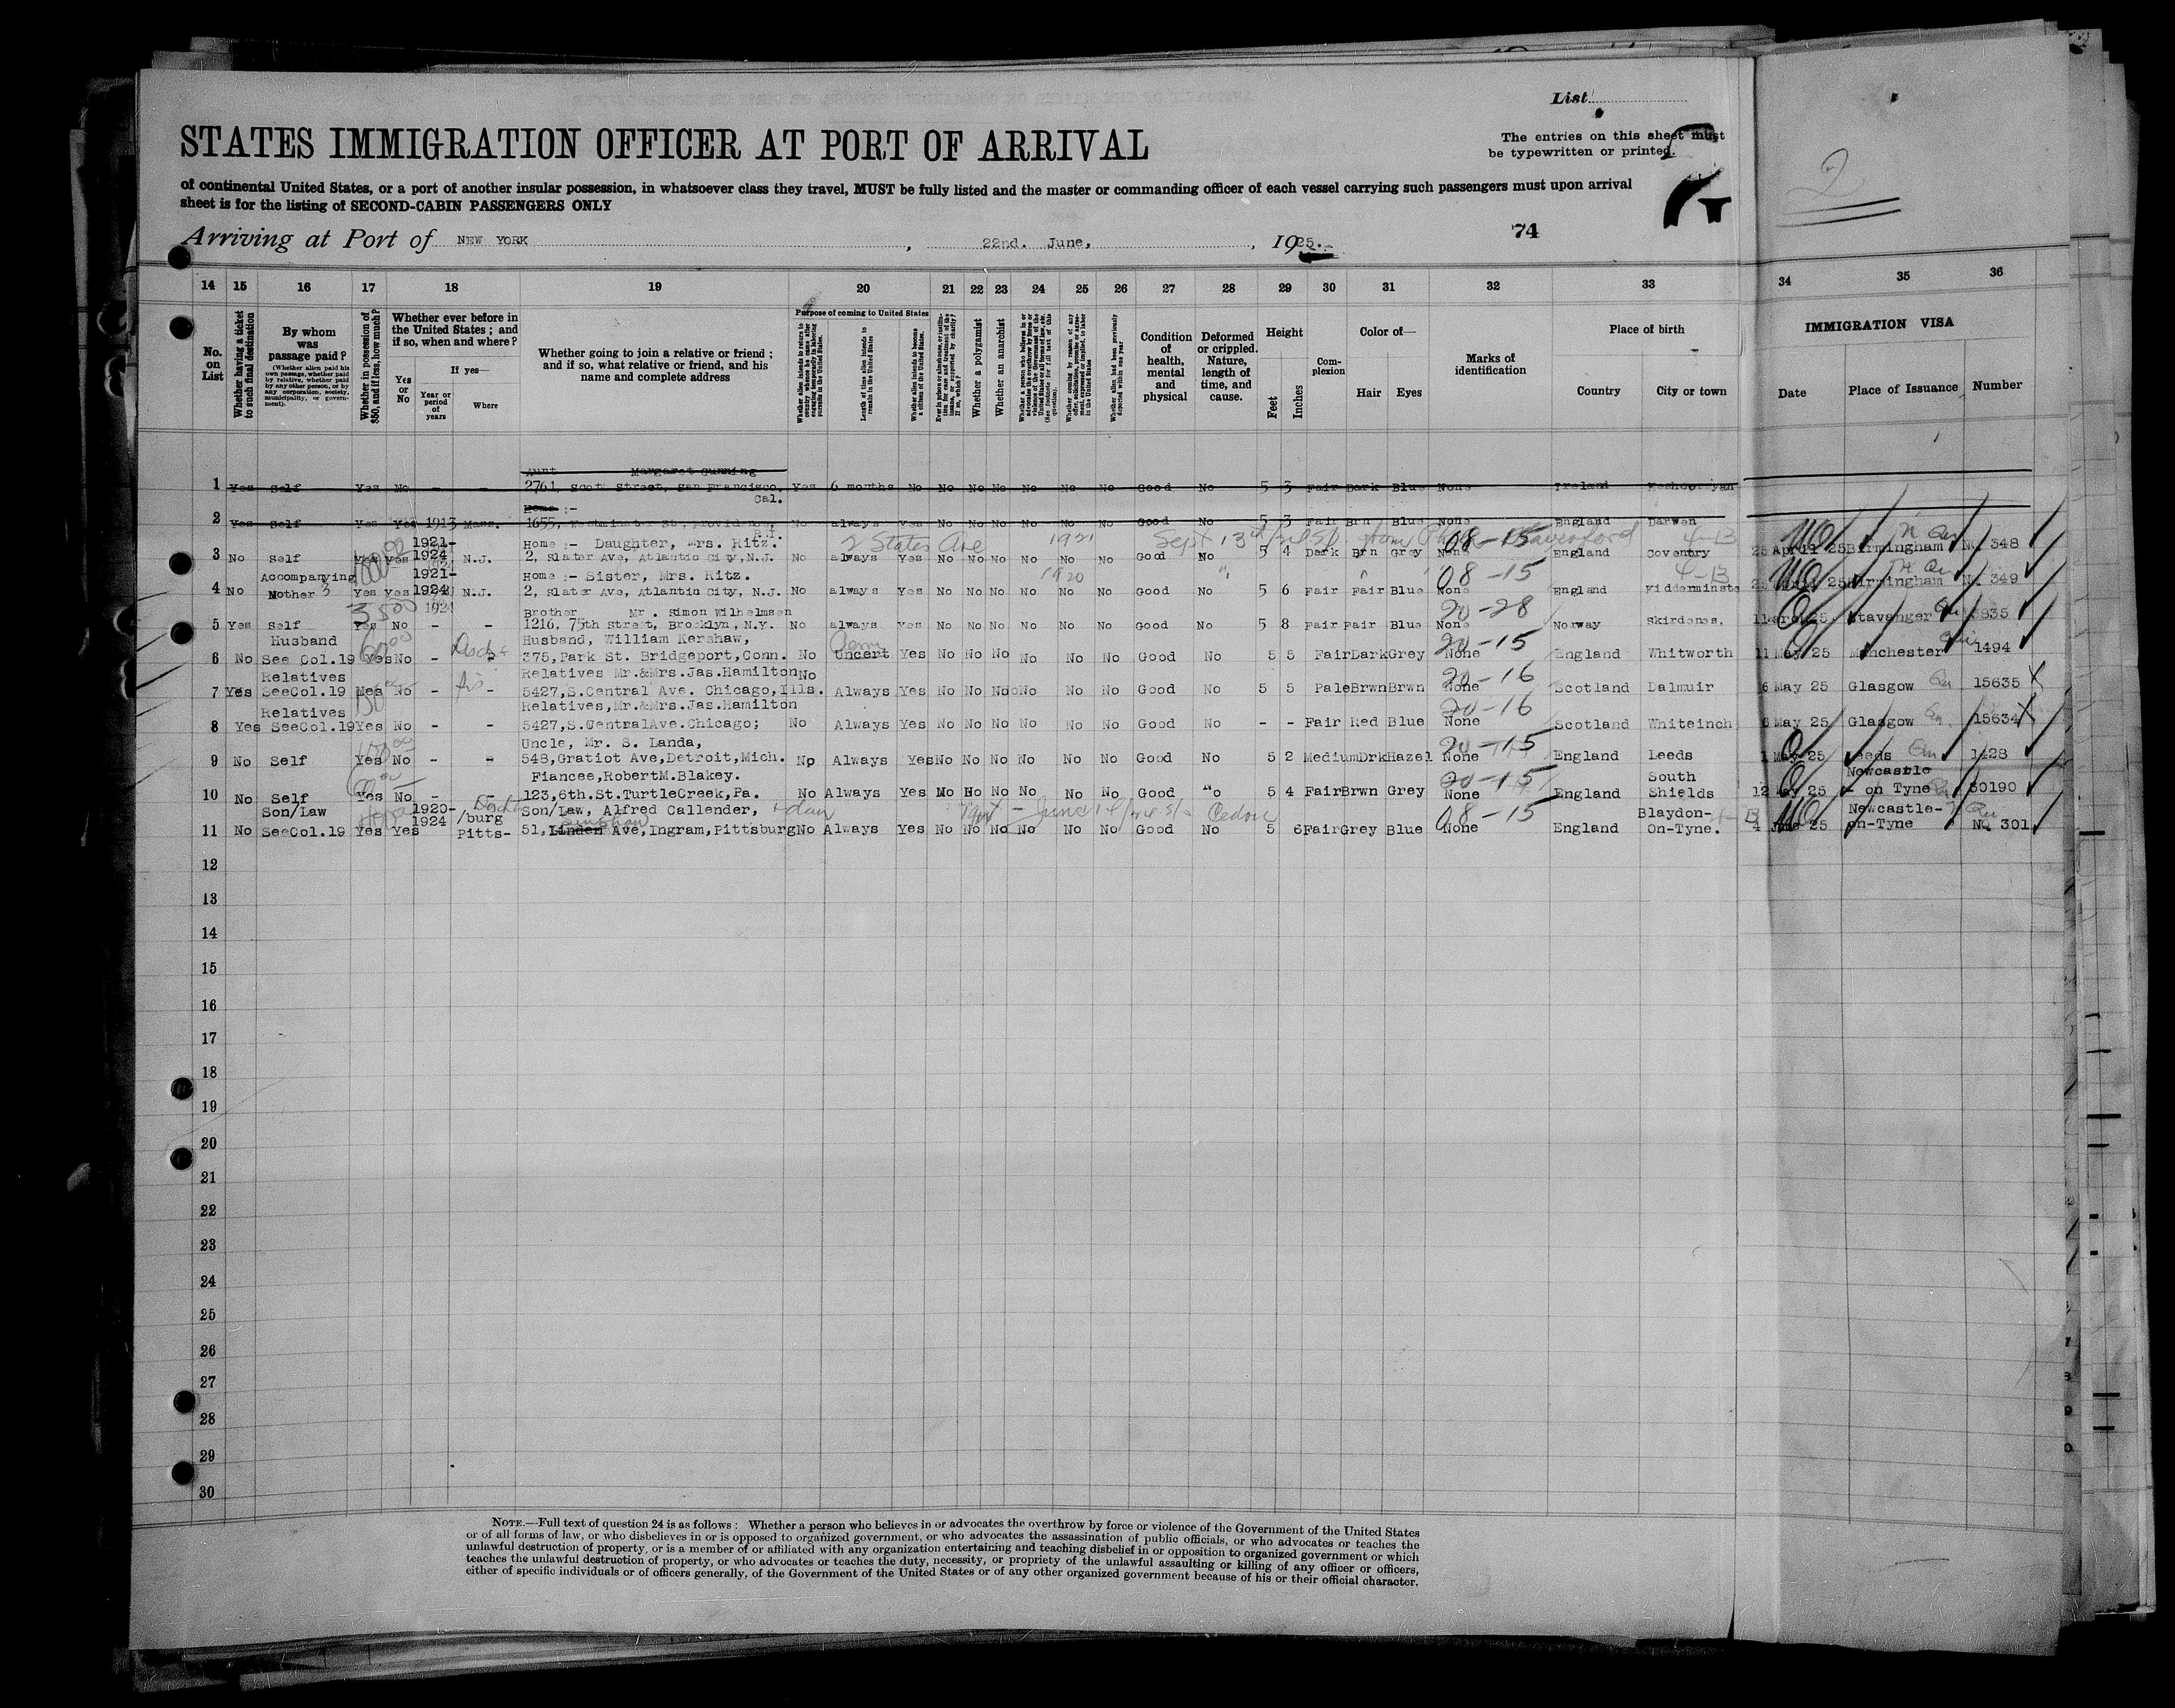 List
The entries on this sheet must
be typewritten or printed.
STATES IMMIGRATION OFFICER AT PORT OF ARRIVAL
of continental United States, or a port of another insular possession, in whatsoever class they travel, MUST be fully listed and the master or commanding officer of each vessel carrying such passengers must upon arrival
sheet is for the listing of SECOND-CABIN PASSENGERS ONLY
2
Arriving at Port of NEW YORK, 22nd. June, 1925.
74
14 15 16 17 18 19 20 21 22 23 24 25 26 27 28 29 30 31 32 33 34 35 36
No. on List
Whether having a ticket to such final destination
By whom was passage paid?
(Whether alien paid his own passage, whether paid by relative, whether paid by any other person, or by any corporation, society, municipality, or government).
Whether in possession of $50, and if less, how much?
Whether ever before in the United States; and if so, when and where?
Yes or No
If yes—
Year or period of years
Where
Whether going to join a relative or friend; and if so, what relative or friend, and his name and complete address
Purpose of coming to United States
Length of time alien intends to remain in the United States
Whether alien intends to become a citizen of the United States
Whether a polygamist
Whether an anarchist
Whether alien had been previously deported within one year
Condition of health, mental and physical
Deformed or crippled. Nature, length of time, and cause.
Height
Feet
Inches
Complexion
Color of—
Hair
Eyes
Marks of identification
Place of birth
Country
City or town
IMMIGRATION VISA
Date
Place of Issuance
Number
Aunt Margaret Gunning
1 Yes Self Yes No - - 2761, Scott Street, San Francisco, Cal. Yes 6 months No No No No No No No Good No 5 3 Fair Dark Blue None Ireland
Home :-
2 Yes Self Yes Yes 1913 Mass. 1655, Westminster St, Providence, R.I. No always Yes No No No No No No Good No 5 3 Fair Brn Blue None England Darwen
1921- Home :- Daughter, Mrs. Ritz. 2 States Ave 1921 Sept 13th 08-15
3 No Self Yes Yes 1924 N.J. 2, Slater Ave, Atlantic City, N.J. No always Yes No No No No No No Good No 5 4 Dark Brn Grey None England Coventry 25 April 25 Birmingham No. 348
Accompanying 1921- Home :- Sister, Mrs. Ritz. 1920 08-15
4 No Mother 3 Yes Yes 1924 N.J. 2, Slater Ave, Atlantic City, N.J. No always Yes No No No No No No Good No 5 6 Fair Fair Blue None England Kidderminste 25 April 25 Birmingham No. 349
Brother Mr. Simon Wilhelmsen 20-28
5 Yes Self Yes No - - 1216, 75th Street, Brooklyn, N.Y. No always Yes No No No No No No Good No 5 8 Fair Fair Blue None Norway Skirdenes. Stavanger 3835
Husband Husband, William Kershaw, 20-15
6 No See Col.19 Yes No - - 375, Park St. Bridgeport, Conn. No Uncert Yes No No No No No No Good No 5 5 Fair Dark Grey None England Whitworth 11 May 25 Manchester 1494
Relatives Relatives Mr.&Mrs.Jas.Hamilton No 20-16
7 Yes SeeCol.19 Mes No - - 5427,S.Central Ave. Chicago,Ills. Always Yes No No No No No No Good No 5 5 Pale Brwn Brwn None Scotland Dalmuir 6 May 25 Glasgow 15635
Relatives Relatives,Mr.&Mrs.Jas.Hamilton 20-16
8 Yes SeeCol.19 Yes No - - 5427,S.CentralAve.Chicago; No Always Yes No No No No No No Good No - - Fair Red Blue None Scotland Whiteinch 6 May 25 Glasgow 15634
Uncle, Mr. S. Landa, 20-15
9 No Self Yes No - - 548,Gratiot Ave,Detroit,Mich. Np Always Yes No No No No No No Good No 5 2 Medium Drk Hazel None England Leeds 1 May 25 Leeds 1428
Fiancee,RobertM.Blakey. 20-15 South Newcastle
10 No Self Yes No - - 123,6th.St.TurtleCreek,Pa. No Always Yes Mo No No No No No Good "o 5 4 Fair Brwn Grey None England Shields 12 May 25 - on Tyne 30190
Son/Law 1920- /burg Son/Law, Alfred Callender, June Cedric 08-15 Blaydon- Newcastle-
11 No SeeCol.19 Yes Yes 1924 Pitts- 51, Linden Ave, Ingram, Pittsburg No Always Yes No No No No No No Good No 5 6 Fair Grey Blue None England On-Tyne. 4 June 25 on-Tyne NQ 301
12
13
14
15
16
17
18
19
20
21
22
23
24
25
26
27
28
29
30
NOTE.—Full text of question 24 is as follows: Whether a person who believes in or advocates the overthrow by force or violence of the Government of the United States
or of all forms of law, or who disbelieves in or is opposed to organized government, or who advocates the assassination of public officials, or who advocates or teaches the
unlawful destruction of property, or is a member of or affiliated with any organization entertaining and teaching disbelief in or opposition to organized government or which
teaches the unlawful destruction of property, or who advocates or teaches the duty, necessity, or propriety of the unlawful assaulting or killing of any officer or officers,
either of specific individuals or of officers generally, of the Government of the United States or of any other organized government because of his or their official character.